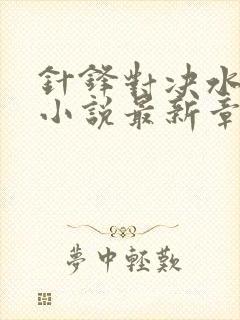 針鋒對决水
小說最新章
夢中輕歎